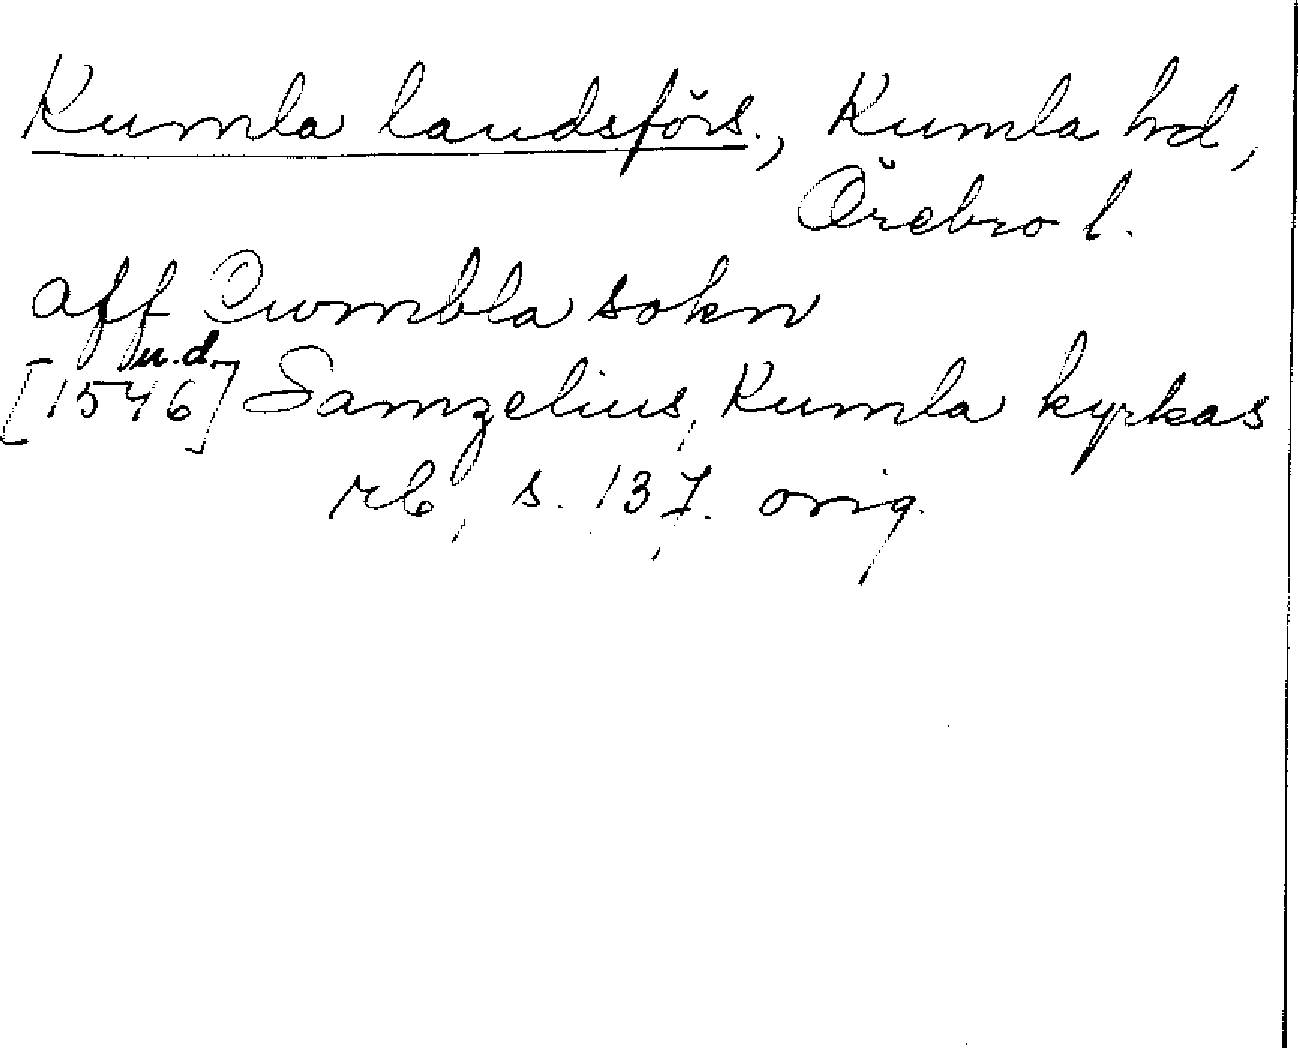 Kumla landsförs., Kumla hd,
Örebro l.
aff Cwmbla sokn
u.d.
[1546] Samzelius, Kumla kyrkas
rb, s. 137. orig.